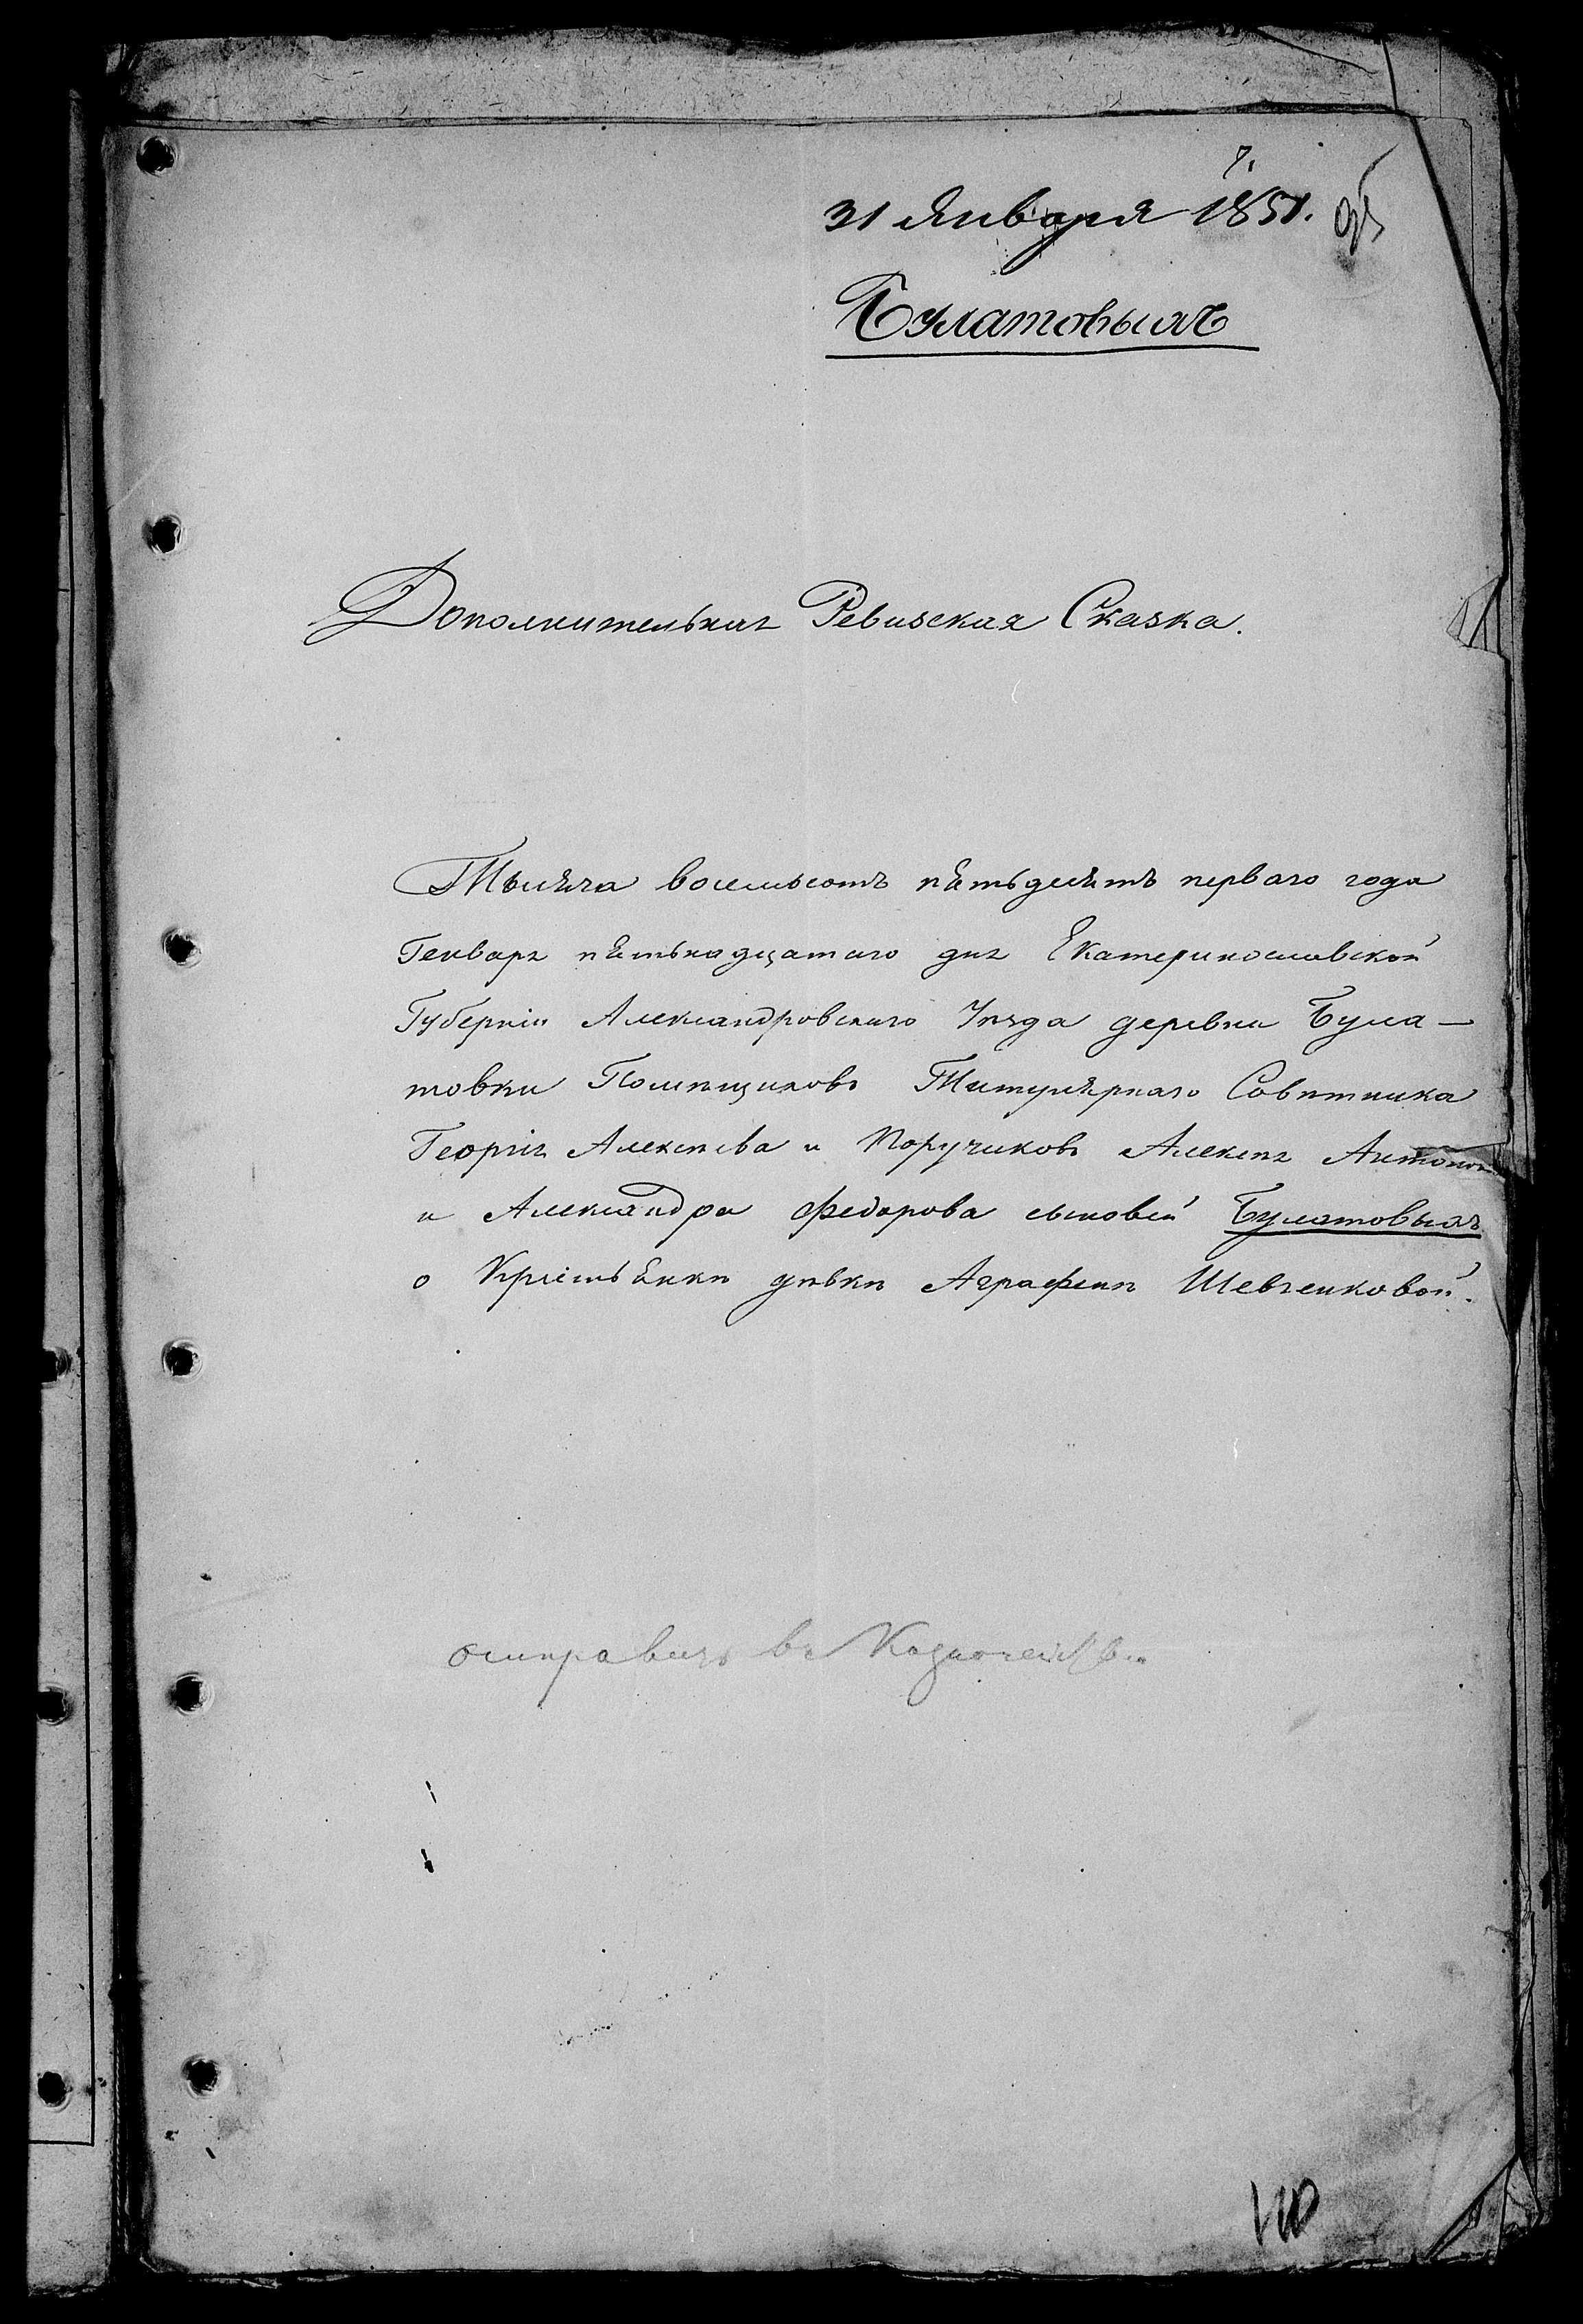 7.
31 Января 1851.
Булатовыхъ
Дополнительная Ревизская Сказка.
Тысяча восемьсотъ пятьдесятъ перваго года
Генваря пятьнадцатаго дня Екатеринославской
Губерніи Александровскаго Уѣзда деревни Була—
товки Помѣщиковъ Титулярнаго Совѣтника
Георгія Алексѣева и Поручиковъ Алексѣя Антонов
и Александра Федорова сыновей Булатовыхъ
о Крестьянкѣ дѣвкѣ Аграфенѣ Шевченковой.
въ Казначейство
110